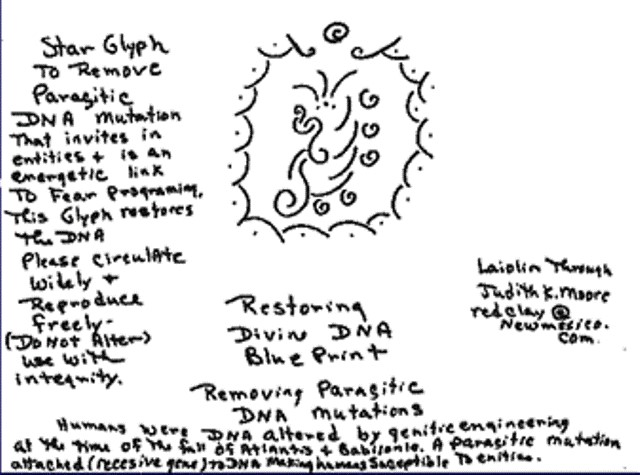 Star Glyph
To Remove
Paragitic
DNA Mutation
That invites in
entities + is an
energetic link
To Fear Programing.
This Glyph restores
the DNA
Please circulate
Widely +
Reproduce
freely-
(Do Not Alter)
use with
integrity.
Laiolin Through
Judith K. Moore
redclay @
Newmexico.
com.
Restoring
Divine DNA
Blue Print
Removing Paragitic
DNA Mutations
Humans were DNA altered by genitic engineering
at the time of the fall of Atlantis + Babilonia. A paragitic mutation
attached (recesive gene) to DNA Making humans Suseptible To enities.